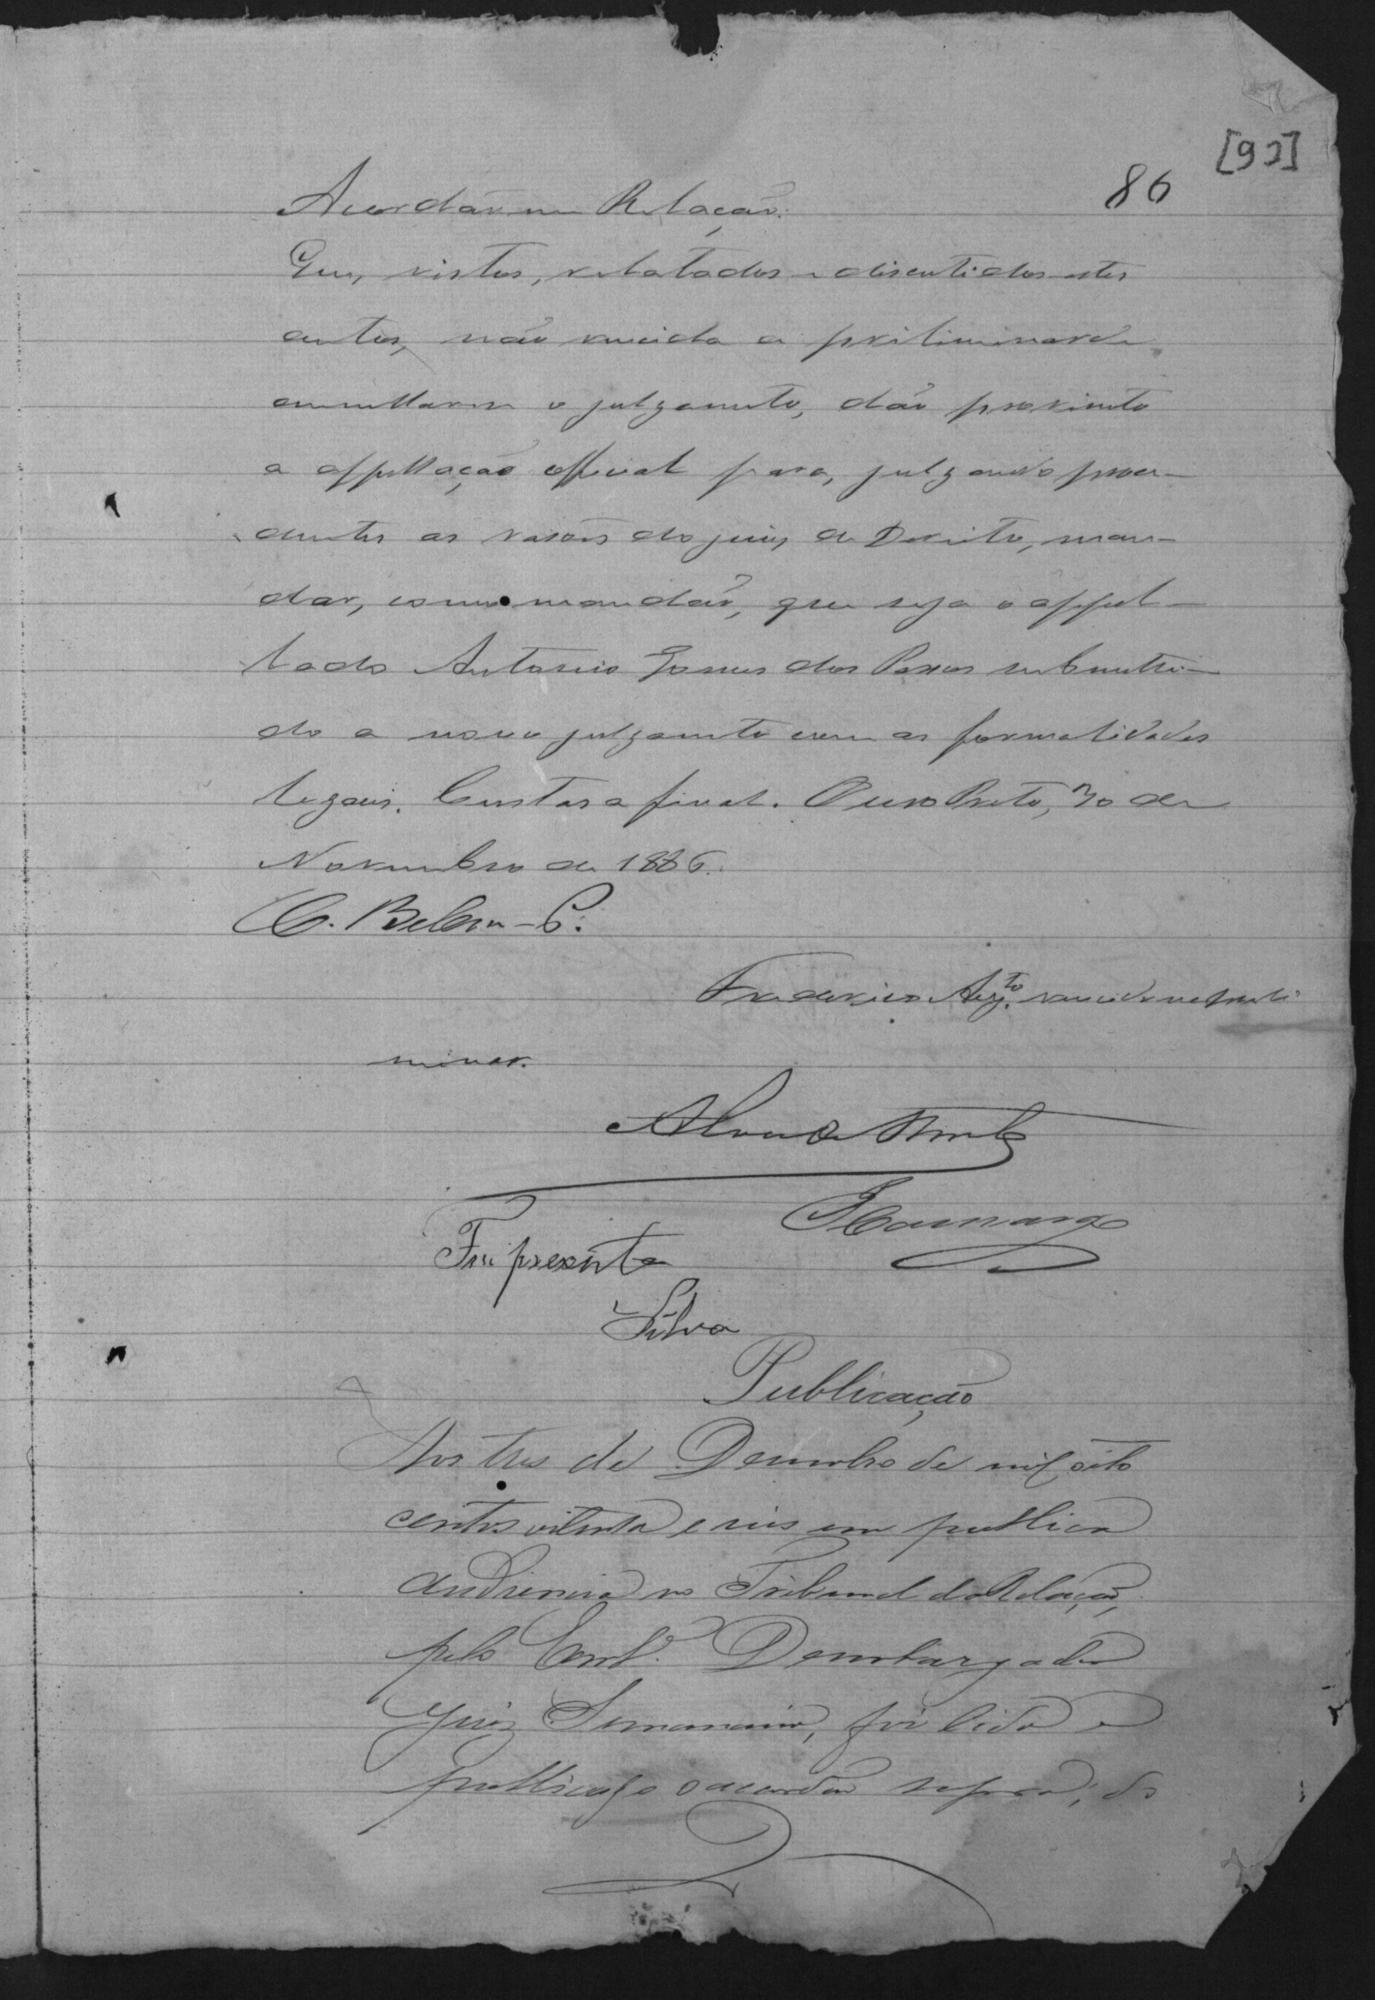 [92]
86
Acordão em Relação.
Que, vistos, relatados e discutidos estes
autos, não vencida a preliminar de
annullarem o julgamento, dão provimento
a appellação official para, julgando proce-
dentes as rasões do juiz de Direito, man-
dar, como mandão, que seja o appel-
lado Antonio Gomes dos Passos submetti-
do a novo julgamento com as formalidades
legais. Custas a final. Ouro Preto, 30 de
Novembro de 1886.
C. Belem - P.
Frederico Aug.to vencido na preli
minar.
Fui presente
Silva
Publicação
Aos tres de Desembro de mil oito
centos oitenta e seis em publica
audiencia no Tribunal da Relação,
pelo Desembargador
Juiz Semanario, foi lido e
publicado o acordão supra; do